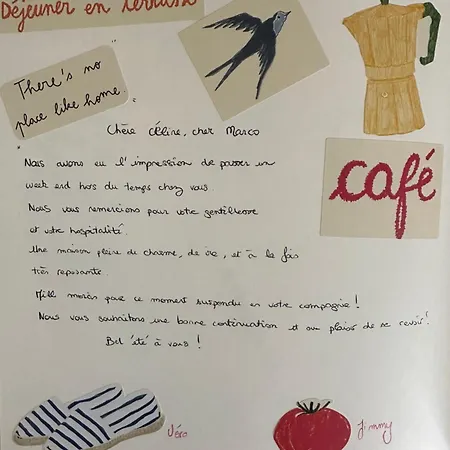 Déjeuner en terrasse
There's no
place like home.
café
Chère Céline, cher Marco
Nous avons eu l'impression de passer un
week end hors du temps chez vous.
Nous vous remercions pour votre gentillesse
et votre hospitalité.
Une maison pleine de charme, de vie, et à la fois
très reposante.
Mille mercis pour ce moment suspendu en votre compagnie !
Nous vous souhaitons une bonne continuation et au plaisir de se revoir !
Bel été à vous !
Véro
Jimmy